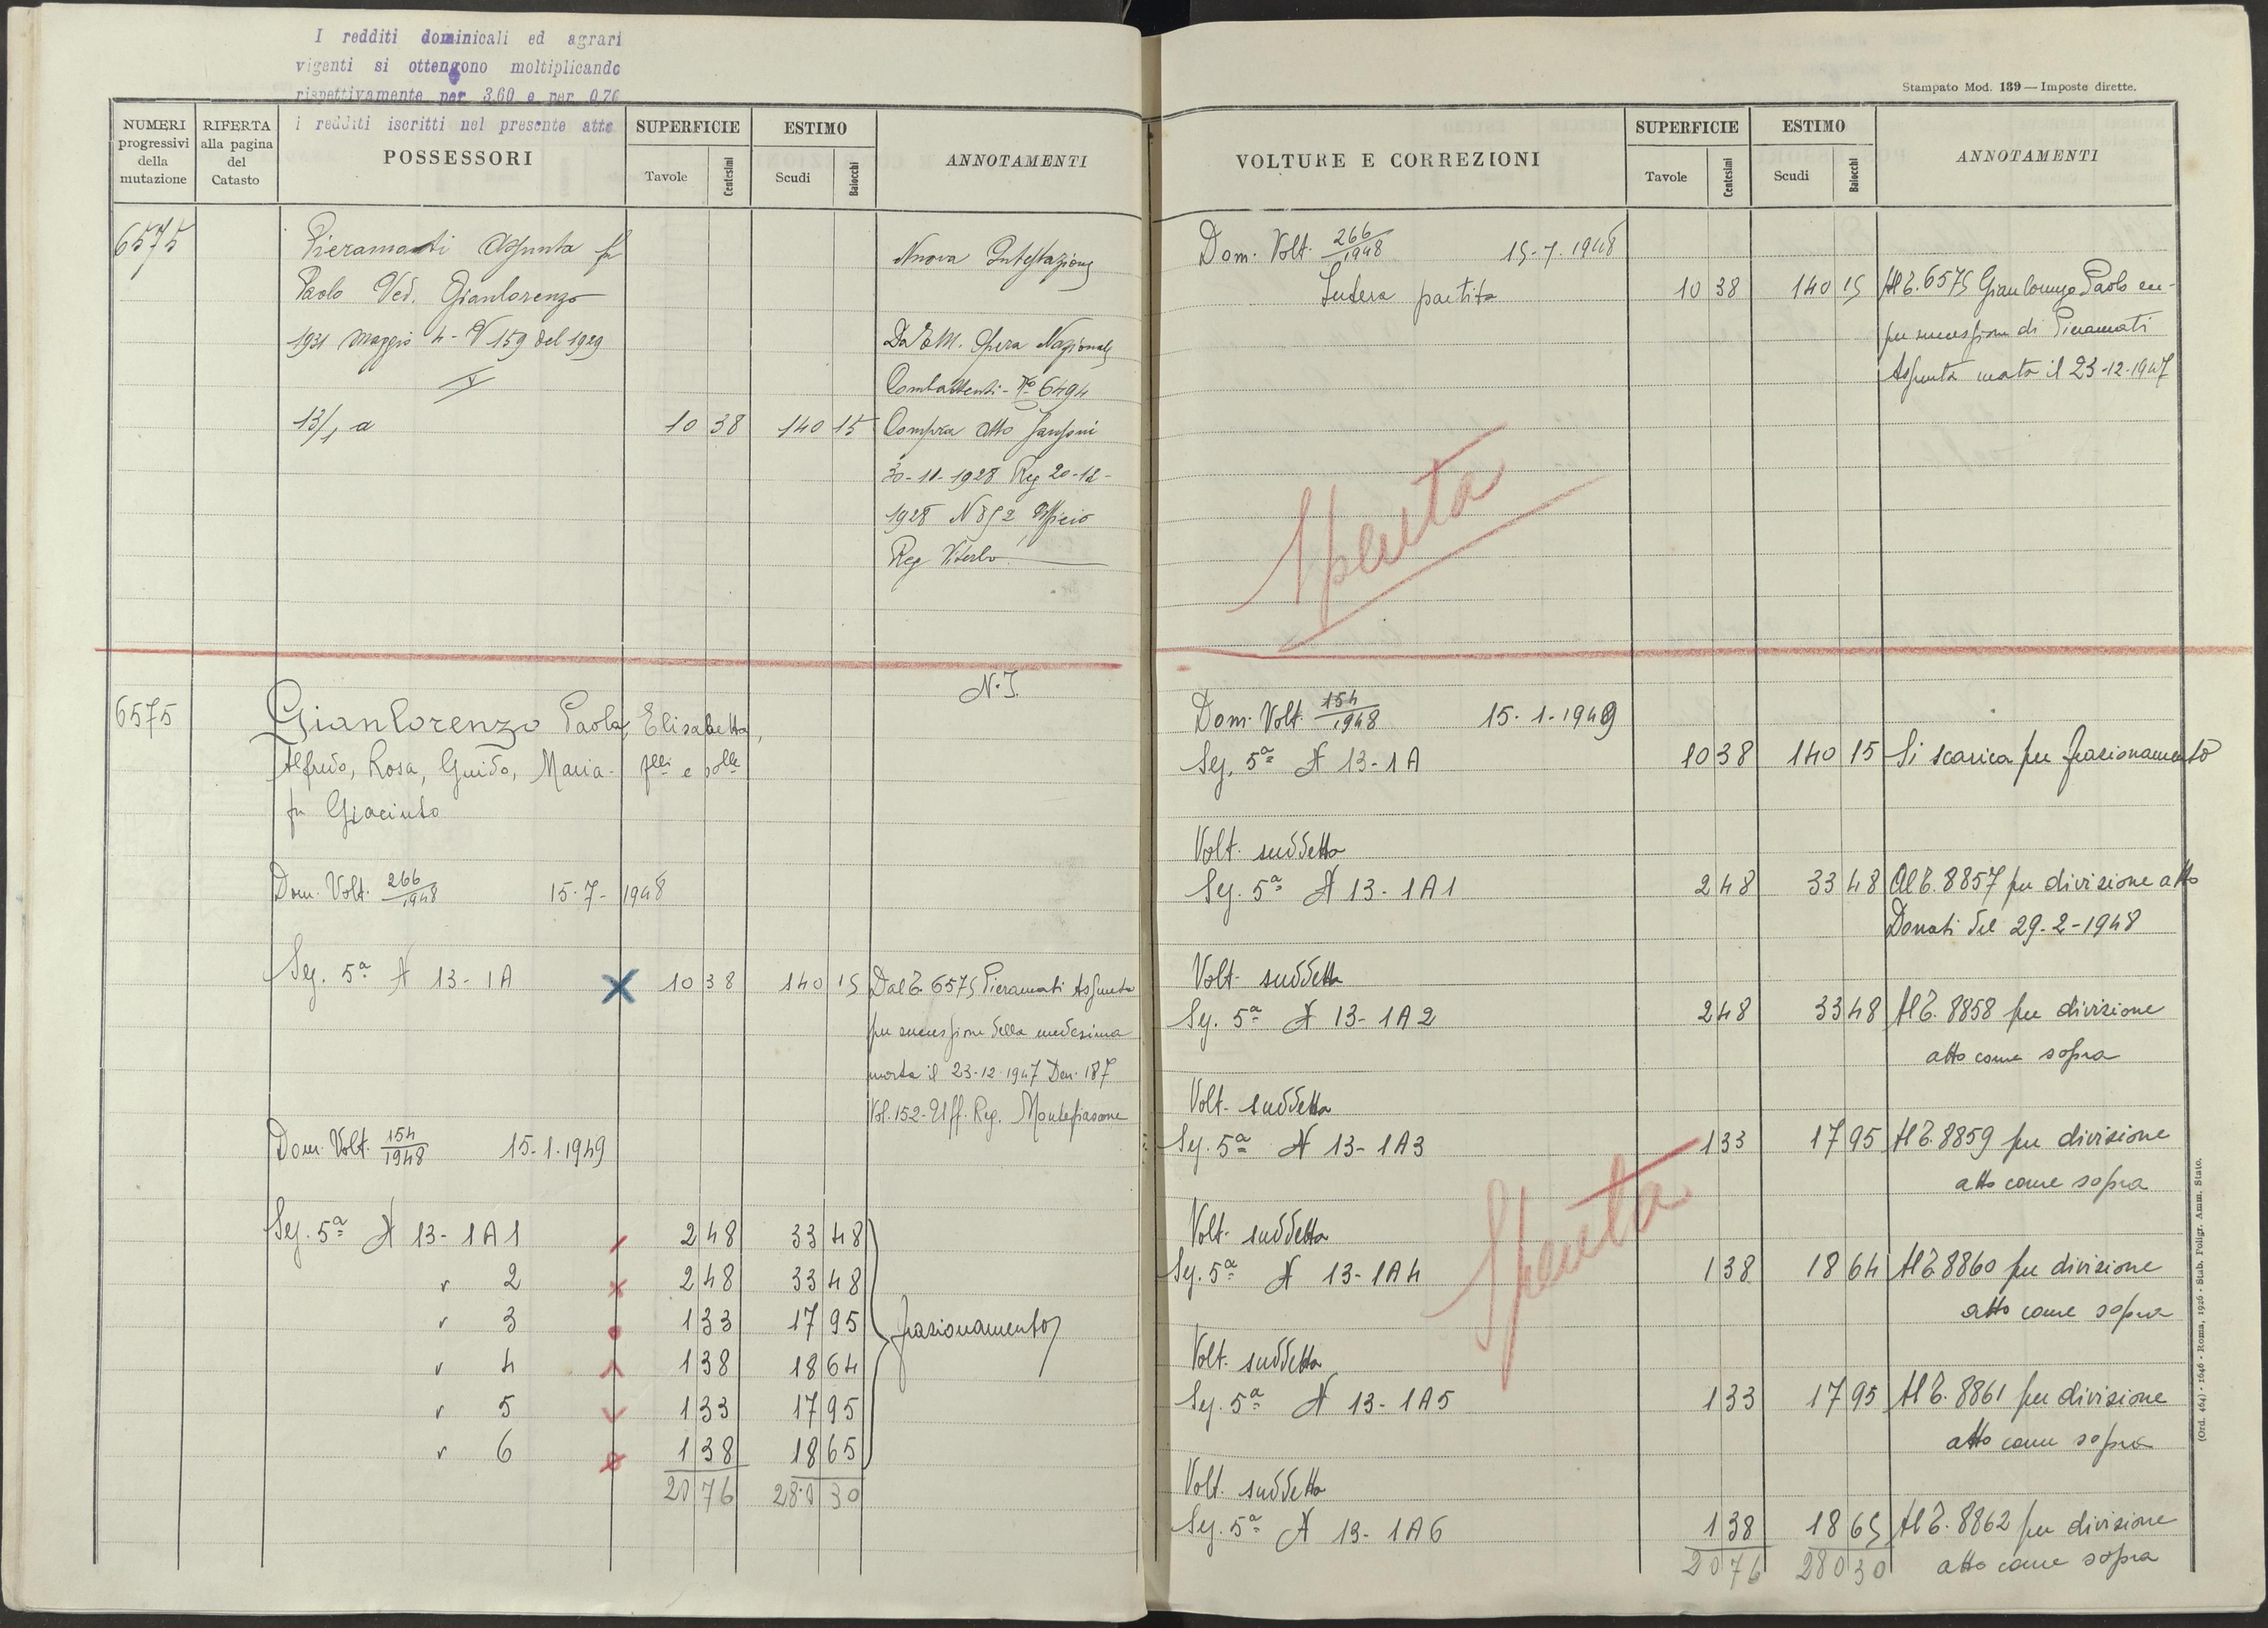 I redditi dominicali ed agrari
vigenti si ottengono moltiplicando
rispettivamente per 3,60 e per 0,70
i redditi iscritti nel presente atto
NUMERI progressivi della mutazione
RIFERTA alla pagina del Catasto
POSSESSORI
SUPERFICIE
Tavole Centesimi
ESTIMO
Scudi Baiocchi
ANNOTAMENTI
6575
Pieramati Assunta fu
Paolo Ved. Gianlorenzo
1931 Maggio 4 - V 159 del 1929
13/1 a 10 38 140 15
Nuova Intestazione
Da E M. Opera Nazionale
Combattenti - No 6494
Compra atto
30-11-1928 Reg 20-12-
1928 N 852 Ufficio
Reg Viterbo
6575
Gianlorenzo Paola, Elisabetta,
Alfredo, Rosa, Guido, Maria - flli e slle
fu Giacinto
N. I.
Dom. Volt. 266/1948 15-7-1948
Sez. 5a A 13-1A X 10 38 140 15
Dal T. 6575 Pieramati Assunta
per successione della medesima
morta il 23-12-1947 Den. 187
Vol. 152 - Uff. Reg. Montefiascone
Dom. Volt. 154/1948 15-1-1949
Sez. 5a A 13-1A1 2 48 33 48
" 2 2 48 33 48
" 3 1 33 17 95
" 4 1 38 18 64
" 5 1 33 17 95
" 6 1 38 18 65
frazionamento
20 76 280 30
Stampato Mod. 139 — Imposte dirette.
VOLTURE E CORREZIONI
SUPERFICIE
Tavole Centesimi
ESTIMO
Scudi Baiocchi
ANNOTAMENTI
Dom. Volt. 266/1948 15-7-1948
Intera partita 10 38 140 15
Al T. 6575 Gianlorenzo Paolo
per successione di Pieramati
Assunta mata il 23-12-1947
Spenta
Dom. Volt. 154/1948 15-1-1949
Sez. 5a A 13-1A 10 38 140 15 Si scarica per frazionamento
Volt. suddetta
Sez. 5a A 13-1A1 2 48 33 48 Al T. 8857 per divisione atto
Donati del 29-2-1948
Volt. suddetta
Sez. 5a A 13-1A2 2 48 33 48 Al T. 8858 per divisione
atto come sopra
Volt. suddetta
Sez. 5a A 13-1A3 1 33 17 95 Al T. 8859 per divisione
atto come sopra
Volt. suddetta
Sez. 5a A 13-1A4 1 38 18 64 Al T. 8860 per divisione
atto come sopra
Spenta
Volt. suddetta
Sez. 5a A 13-1A5 1 33 17 95 Al T. 8861 per divisione
atto come sopra
Volt. suddetta
Sez. 5a A 13-1A6 1 38 18 65 Al T. 8862 per divisione
20 76 280 30 atto come sopra
(Ord. 464) - 1646 - Roma, 1926 - Stab. Poligr. Amm. Stato.